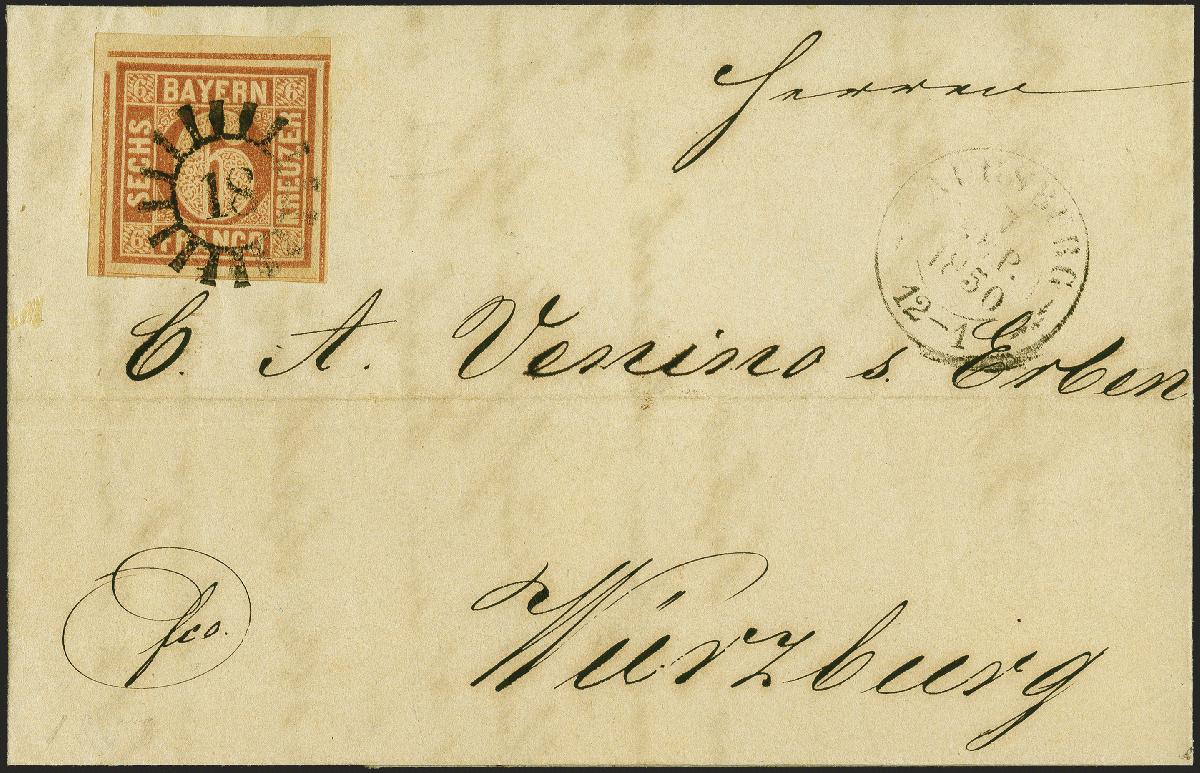 6 BAYERN 6
SECHS
KREUZER
18
6 FRANCO
Herren
AUGSBURG
SEP.
1850
12-1
C. A. Venino s. Erben
fco.
Würzburg